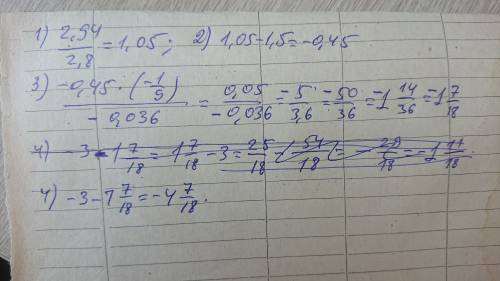 1) 2,94/2,8 = 1,05; 2) 1,05-1,5=-0,45
3) -0,45·(-1/9)/-0,036 = 0,05/-0,036 = -5/3,6 = -50/36 = -1 14/36 = -1 7/18
4) -3-1 7/18 = 1 7/18 - 3 = 25/18
4) -3-1 7/18 = -4 7/18.